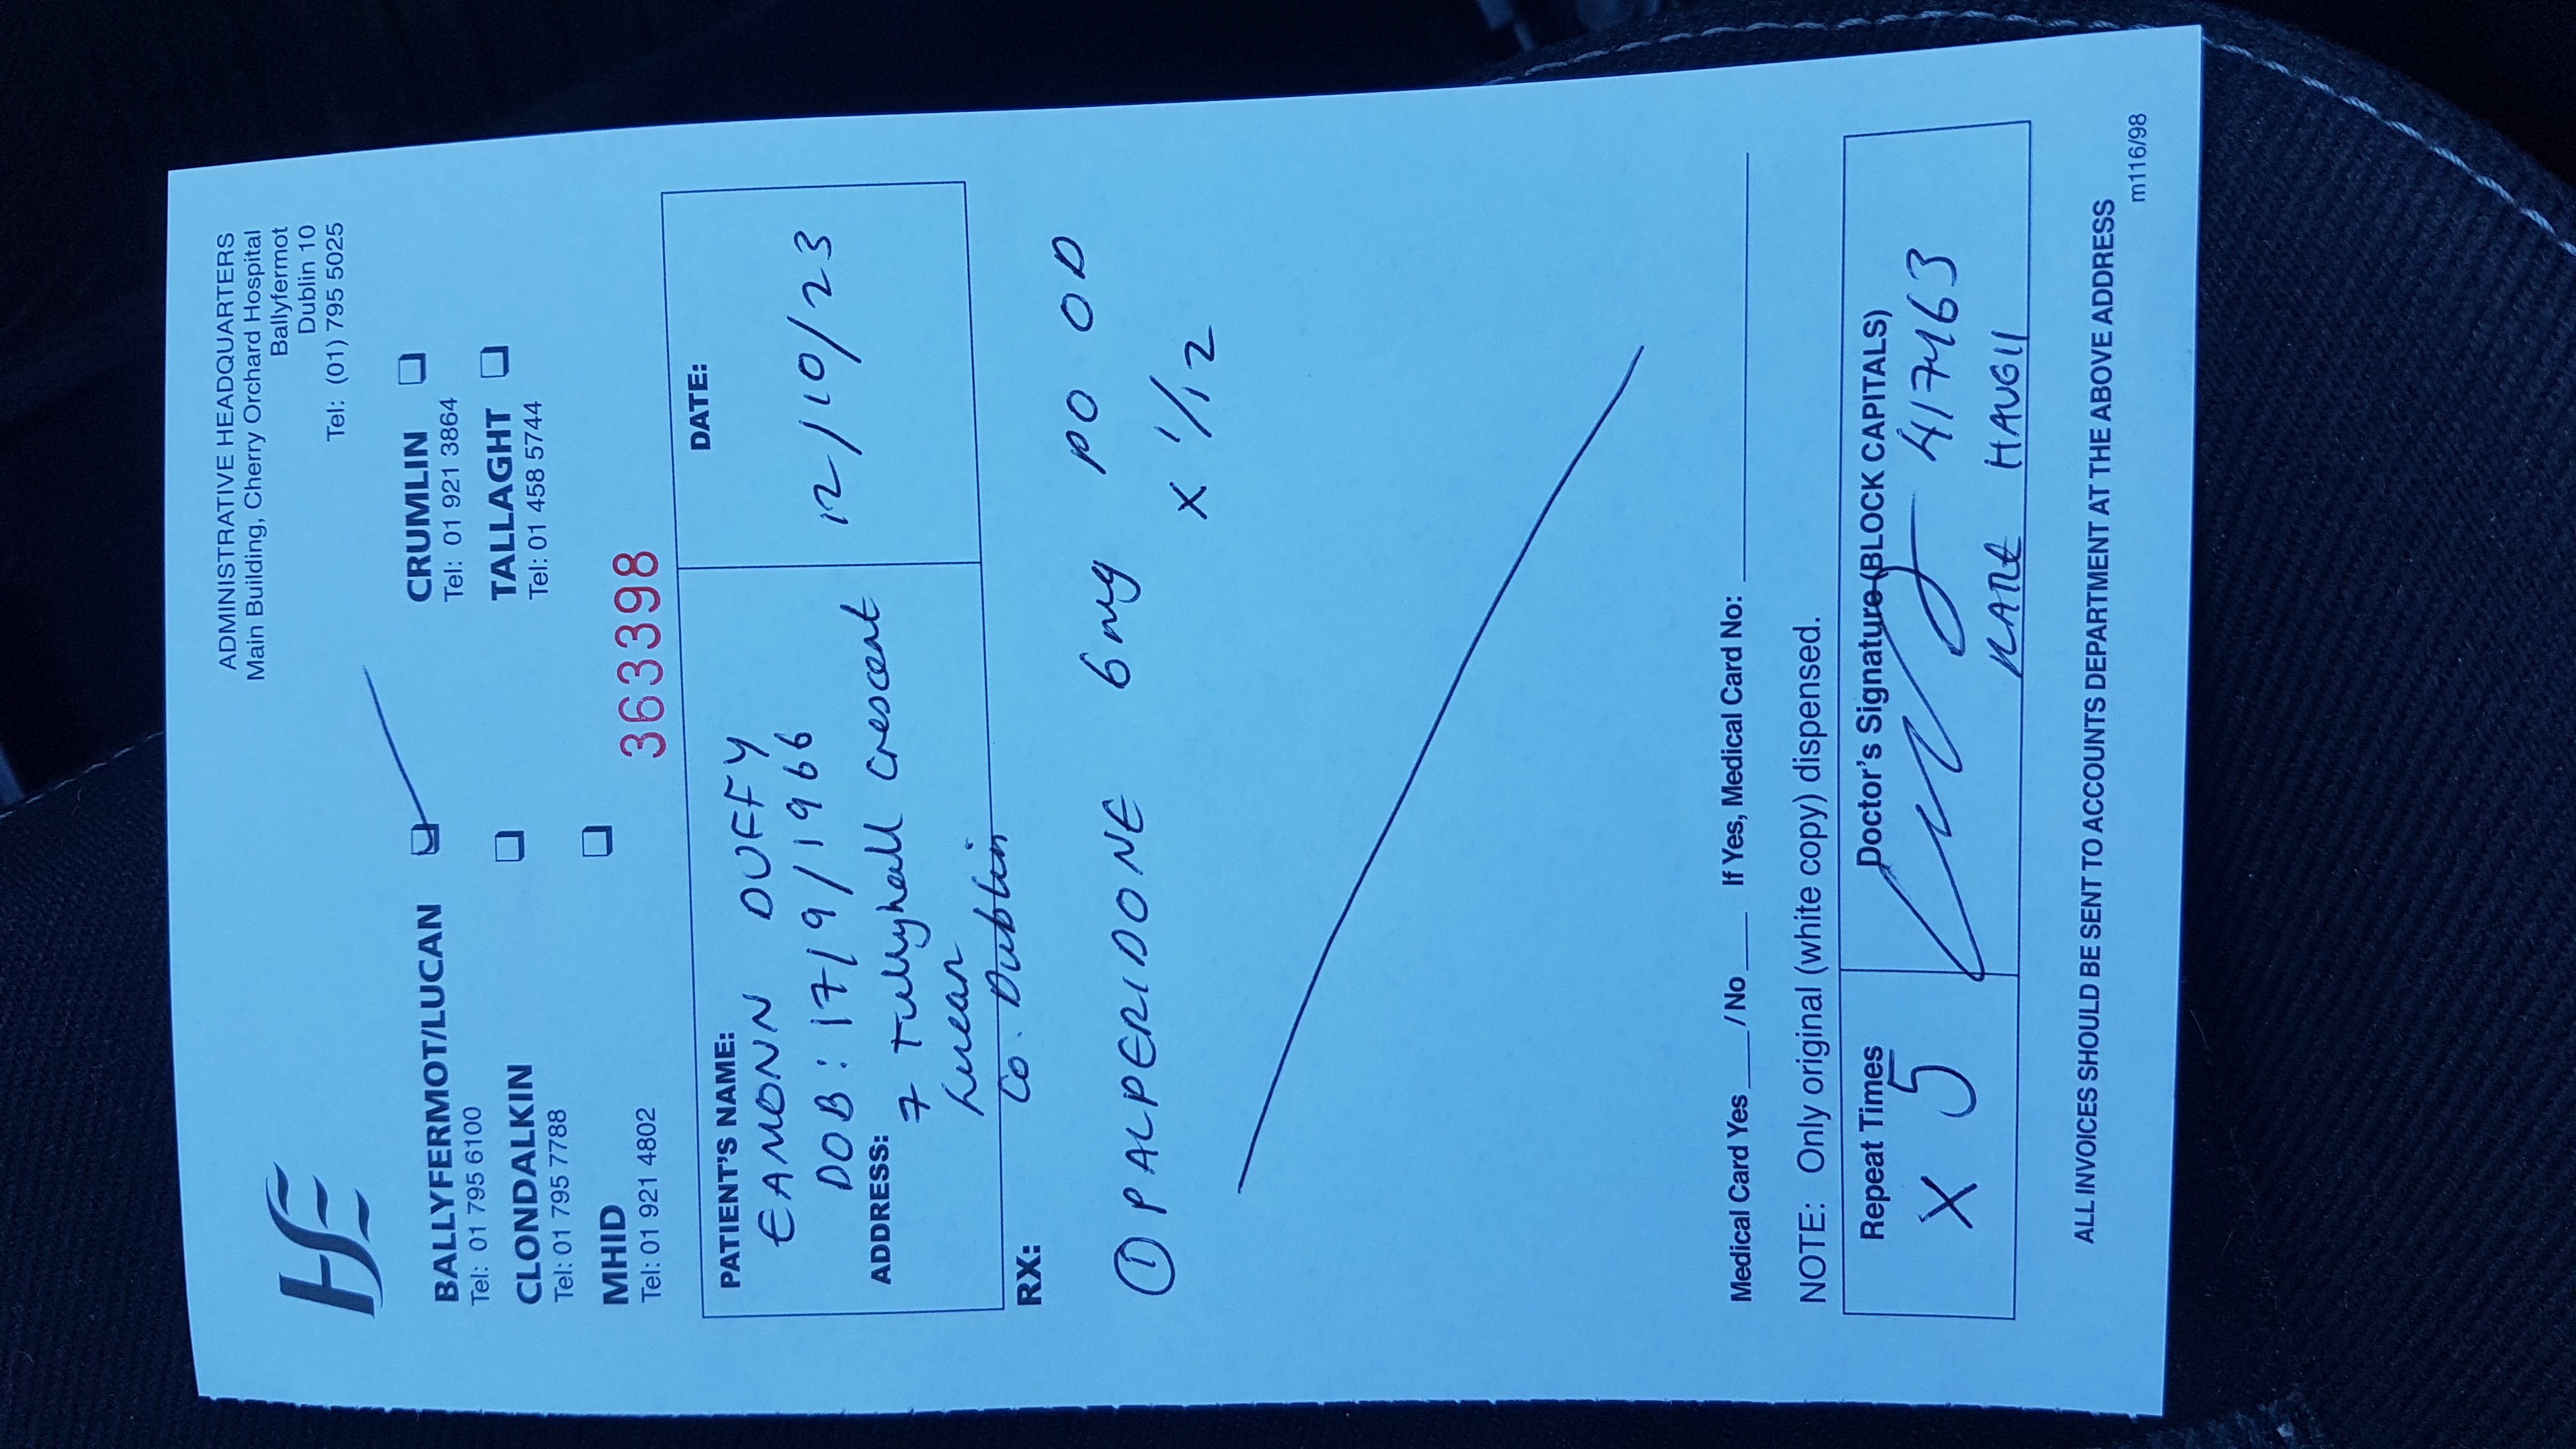 ADMINISTRATIVE HEADQUARTERS
Main Building, Cherry Orchard Hospital
Ballyfermot
Dublin 10
Tel: (01) 795 5025
HSE
BALLYFERMOT/LUCAN
Tel: 01 795 6100
CRUMLIN
Tel: 01 921 3864
CLONDALKIN
Tel: 01 795 7788
TALLAGHT
Tel: 01 458 5744
MHID
Tel: 01 921 4802
363398
PATIENT'S NAME:
EAMONN DUFFY
DOB: 17/9/1966
DATE:
12/10/23
ADDRESS:
7 Tullyhall Crescent
Lucan
Co. Dublin
RX:
① PALPERIDONE 6mg PO OD
x 1/12
Medical Card Yes ____ / No ____ If Yes, Medical Card No: ____
NOTE: Only original (white copy) dispensed.
Repeat Times
x 5
Doctor's Signature (BLOCK CAPITALS)
417463
HAUGH
ALL INVOICES SHOULD BE SENT TO ACCOUNTS DEPARTMENT AT THE ABOVE ADDRESS
m116/98